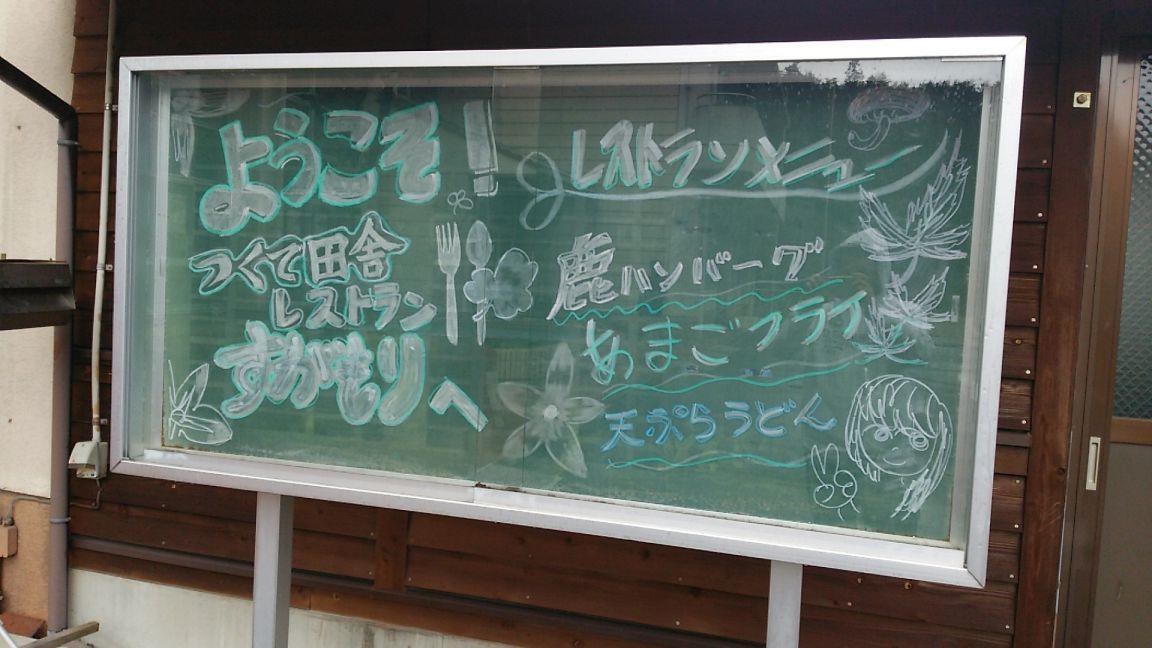 ようこそ!
つくで田舎
レストラン
すがもりへ
レストランメニュー
鹿ハンバーグ
あまごフライ
天ぷらうどん